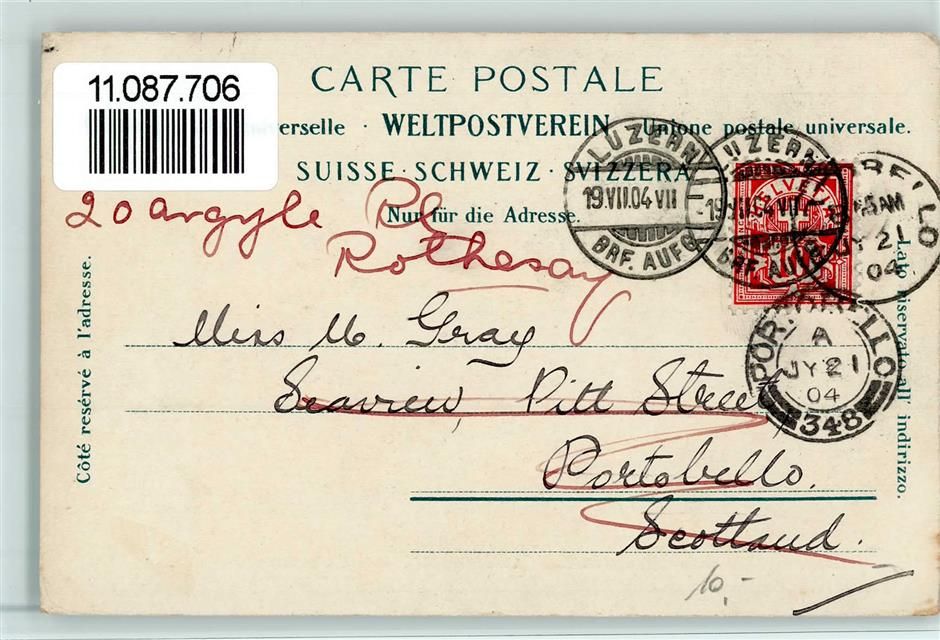 11.087.706
CARTE POSTALE
verselle · WELTPOSTVEREIN · Unione postale universale.
SUISSE · SCHWEIZ · SVIZZERA
Nur für die Adresse.
20 argyle Pl
Rothesay
LUZERN
19.VII.04 VII
BRF. AUFG
UZERN
19.VII.04 VII
BRF. AUFG
HELVET
10
AM
JY 21
04
PORTOBELLO
A
JY 21
04
348
Côté resérvé à l'adresse.
Lato riservato all' indirizzo.
Miss M. Gray
Seaview, Pitt Street
Portobello.
Scotland.
10,-